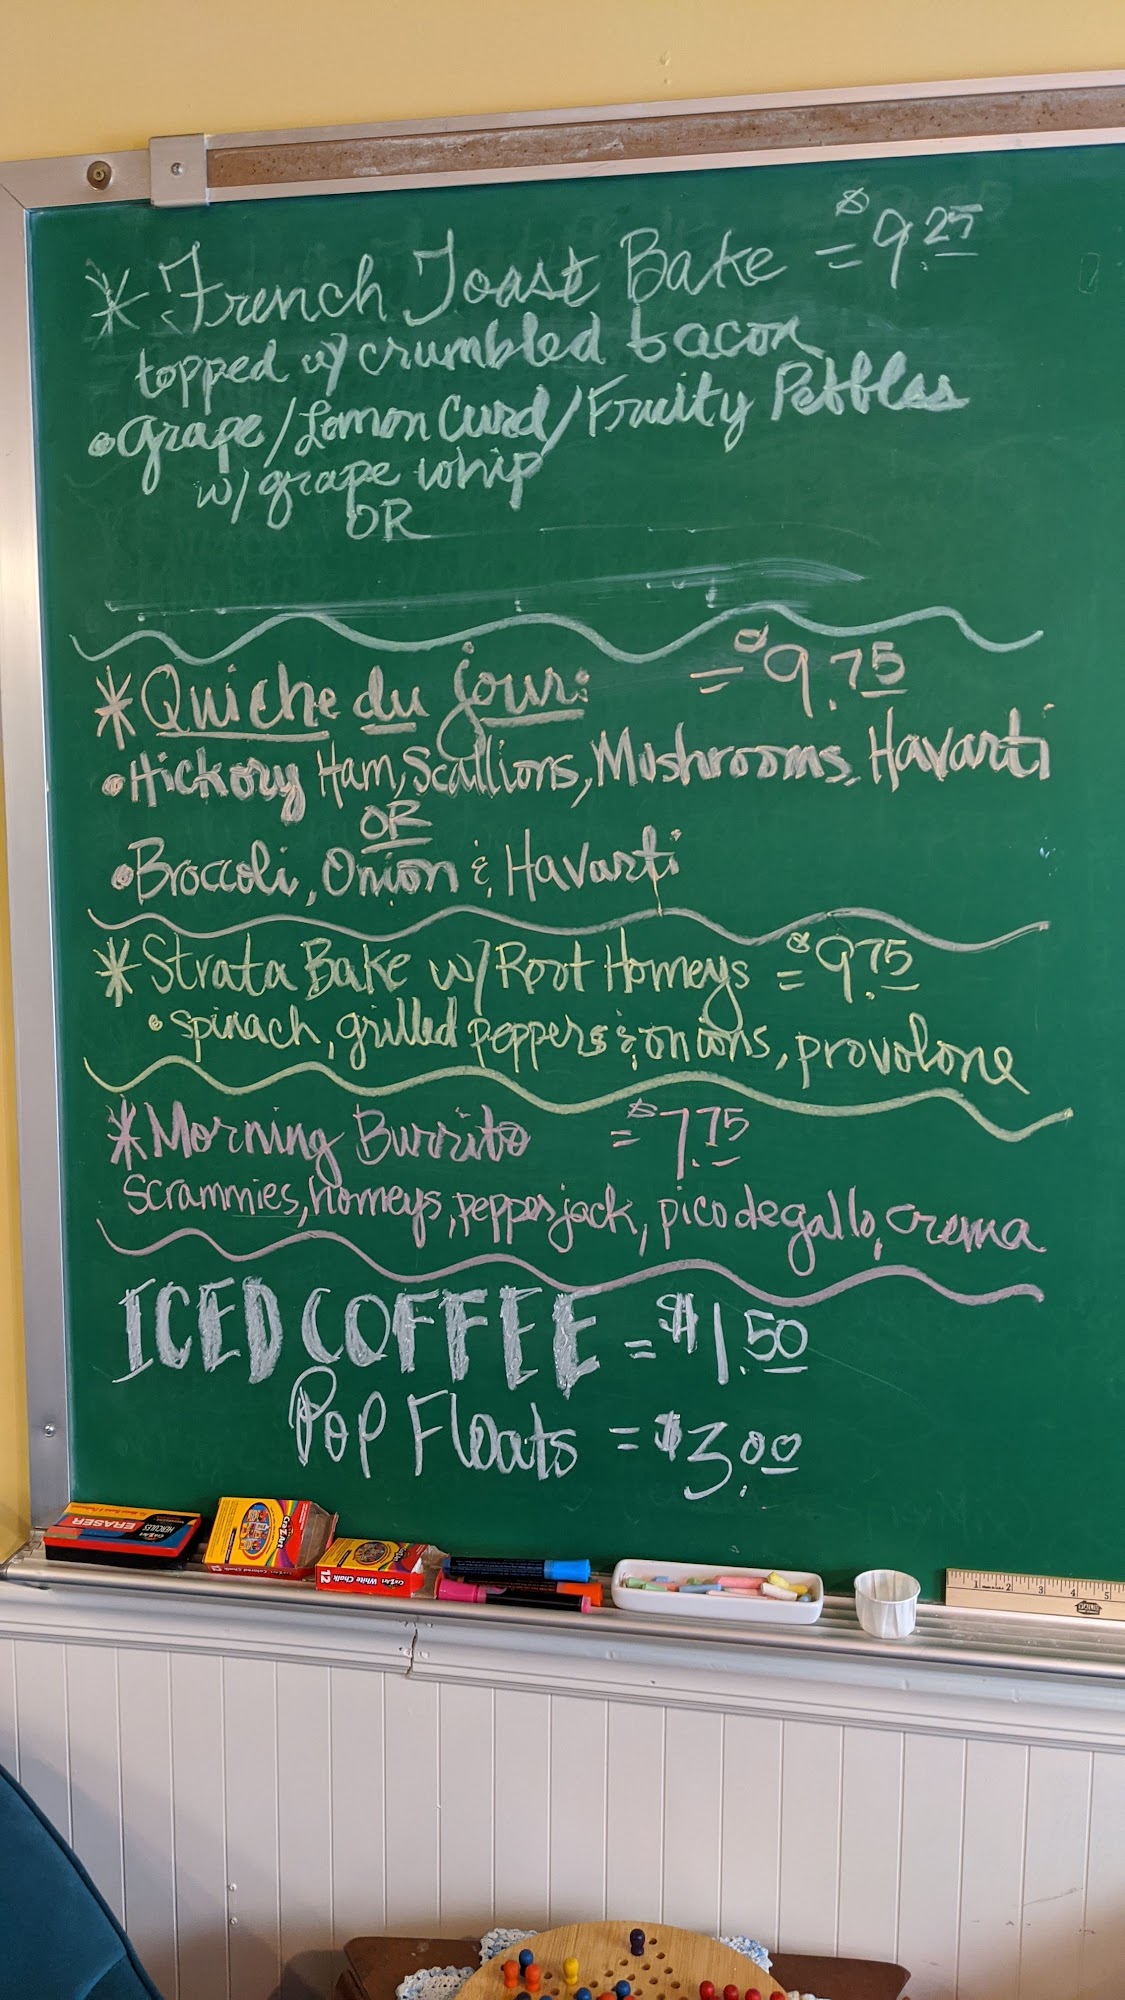 * French Toast Bake = $9.25
topped w/ crumbled bacon
• grape / Lemon Curd / Fruity Pebbles
w/ grape whip
OR
* Quiche du jour: = $9.75
• Hickory Ham, Scallions, Mushrooms, Havarti
OR
• Broccoli, Onion & Havarti
* Strata Bake w/ Root Homeys = $9.75
• spinach, grilled peppers & onions, provolone
* Morning Burrito = $7.75
Scrammies, homeys, pepperjack, pico de gallo, crema
ICED COFFEE = $1.50
Pop Floats = $3.00
ERASER
HERCULES
CraZArt
CraZArt
Colored Chalk
12
White Chalk
CraZArt
1 2 3 4 5